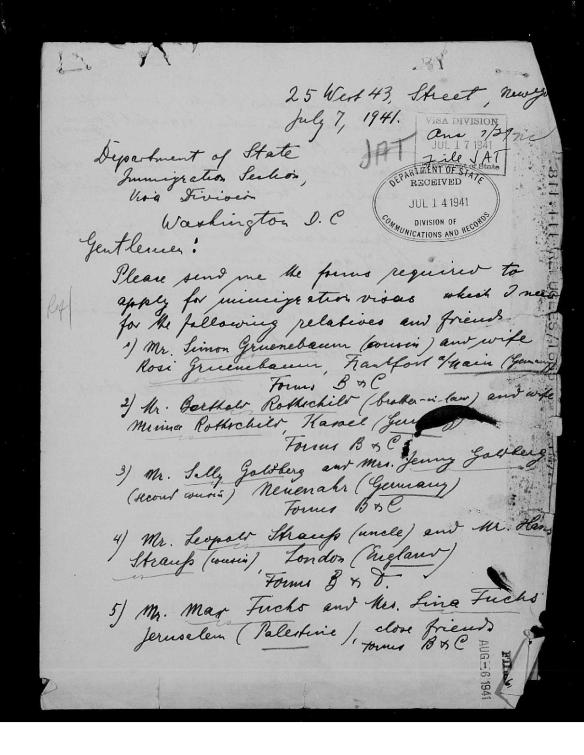 25 West 43, Street, New Yo
July 7, 1941.
VISA DIVISION
Ans 7/29
JUL 17 1941
File JAT
of State
JAT
DEPARTMENT OF STATE
RECEIVED
JUL 14 1941
DIVISION OF
COMMUNICATIONS AND RECORDS
Department of State
Immigration Section,
Visa Division
Washington D.C
Gentlemen:
Please send me the forms required to
apply for immigration visas which I need
for the following relatives and friends
1) Mr. Simon Gruenebaum (cousin) and wife
Rosi Gruenebaum, Frankfort a/Main (Germany)
Forms B & C
2) Mr. Berthold Rothschild (brother-in-law) and wife
Minna Rothschild, Kassel (Ger
Forms B & C
3) Mr. Sally Goldberg and Mrs. Jenny Goldberg
(second cousin) Neuenahr (Germany)
Forms B & C
4) Mr. Leopold Strauß (uncle) and Mr. Hans
Strauß (cousin), London (England)
Forms B & D.
5) Mr. Max Fuchs and Mrs. Lina Fuchs
Jerusalem (Palestine), close friends
Forms B & C
AUG -6 1941